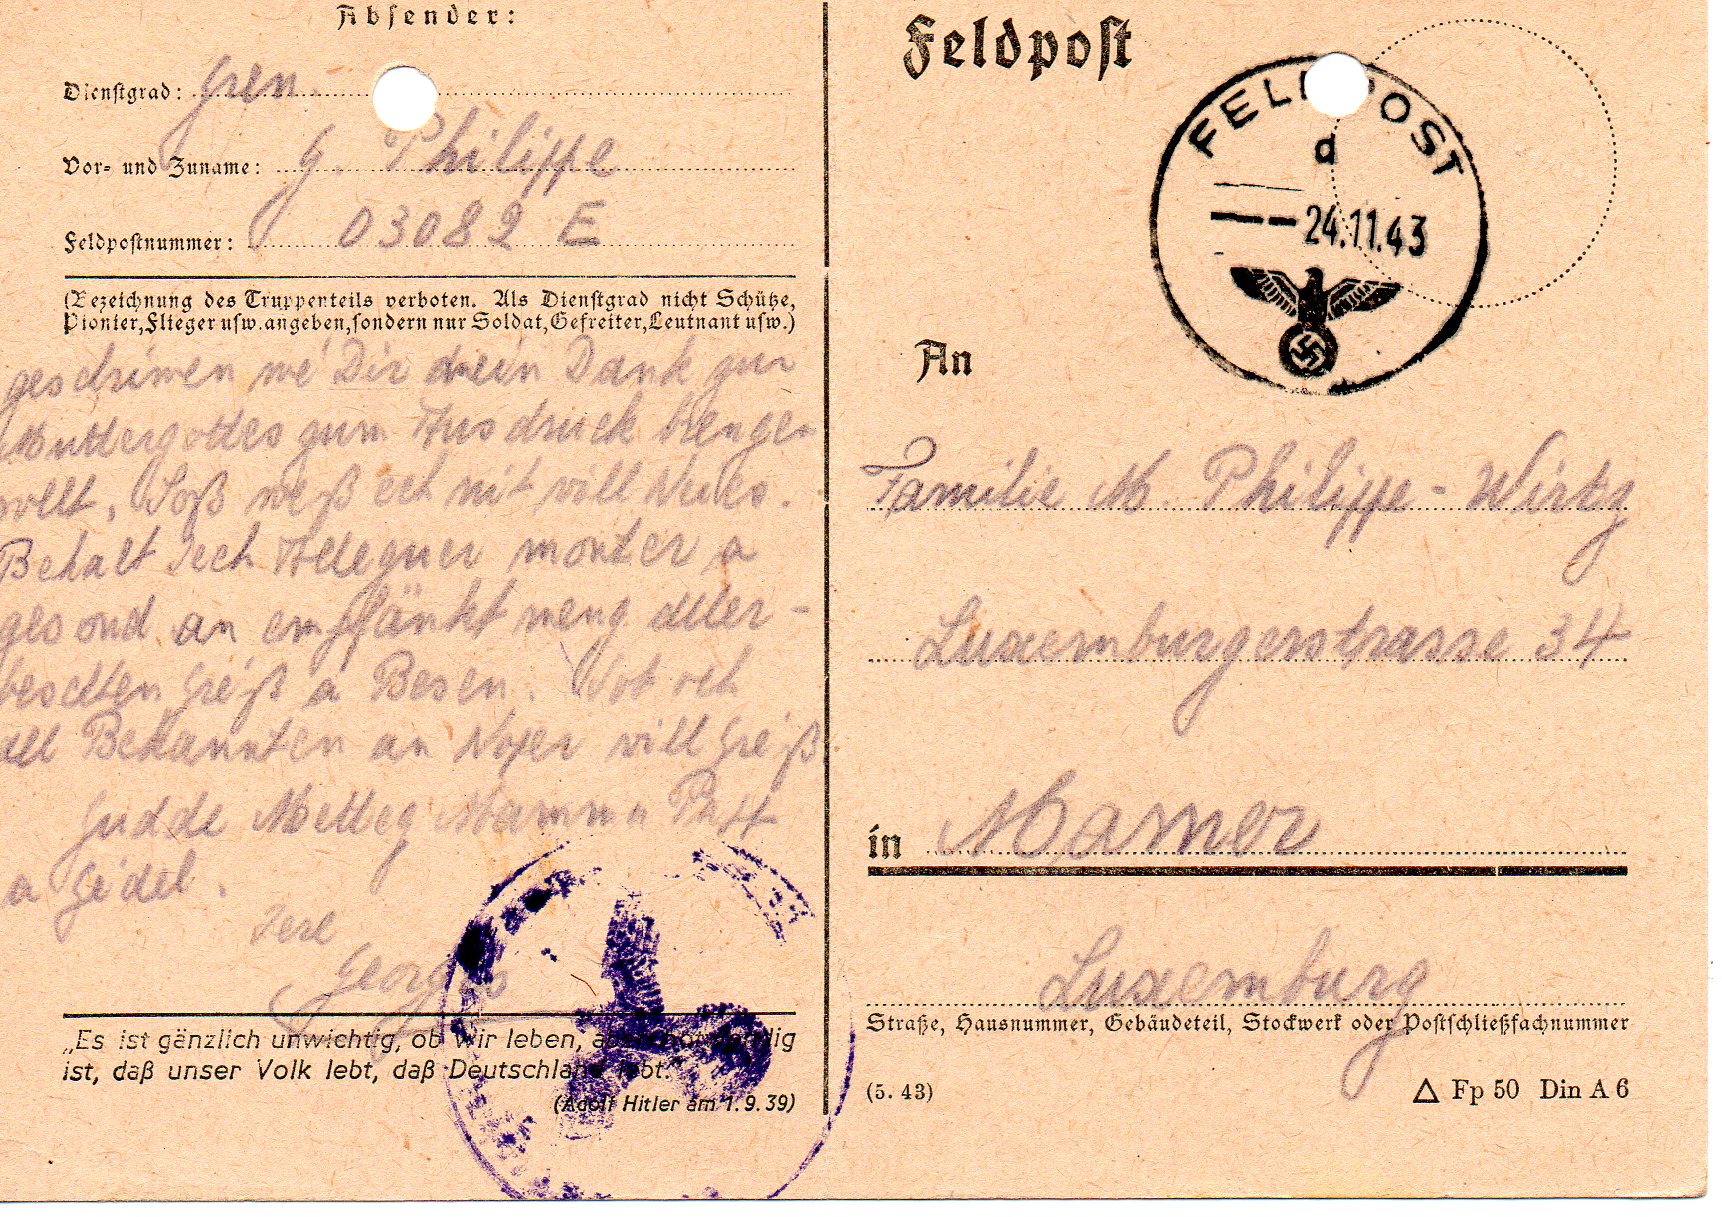 Absender:
Dienstgrad: Gren.
Vor- und Zuname: G. Philippe
Feldpostnummer: 03082 E
(Bezeichnung des Truppenteils verboten. Als Dienstgrad nicht Schütze,
Pionier, Flieger usw. angeben, sondern nur Soldat, Gefreiter, Leutnant usw.)
geschriwen we' Dir mein Dank zur
Muttergottes zum Ausdruck brengen
wellt. Soß weß ech nit vill Neues.
Behalt Iech Alleguer monter a
gesond an empfänkt meng aller-
beschten Greiß a Besen. Sot och
all Bekannten an Noper vill Greiß.
Gudde Metteg Mamm Papp
a Gidel.
Iere
Georges
„Es ist gänzlich unwichtig, ob wir leben, aber notwendig
ist, daß unser Volk lebt, daß Deutschland lebt.“
(Adolf Hitler am 1. 9. 39)
Feldpost
FELDPOST
d
24.11.43
An
Familie M. Philippe-Wirtz
Luxemburgerstrasse 34
in Mamer
Luxemburg
Straße, Hausnummer, Gebäudeteil, Stockwerk oder Postschließfachnummer
(5. 43)
△ Fp 50 Din A 6